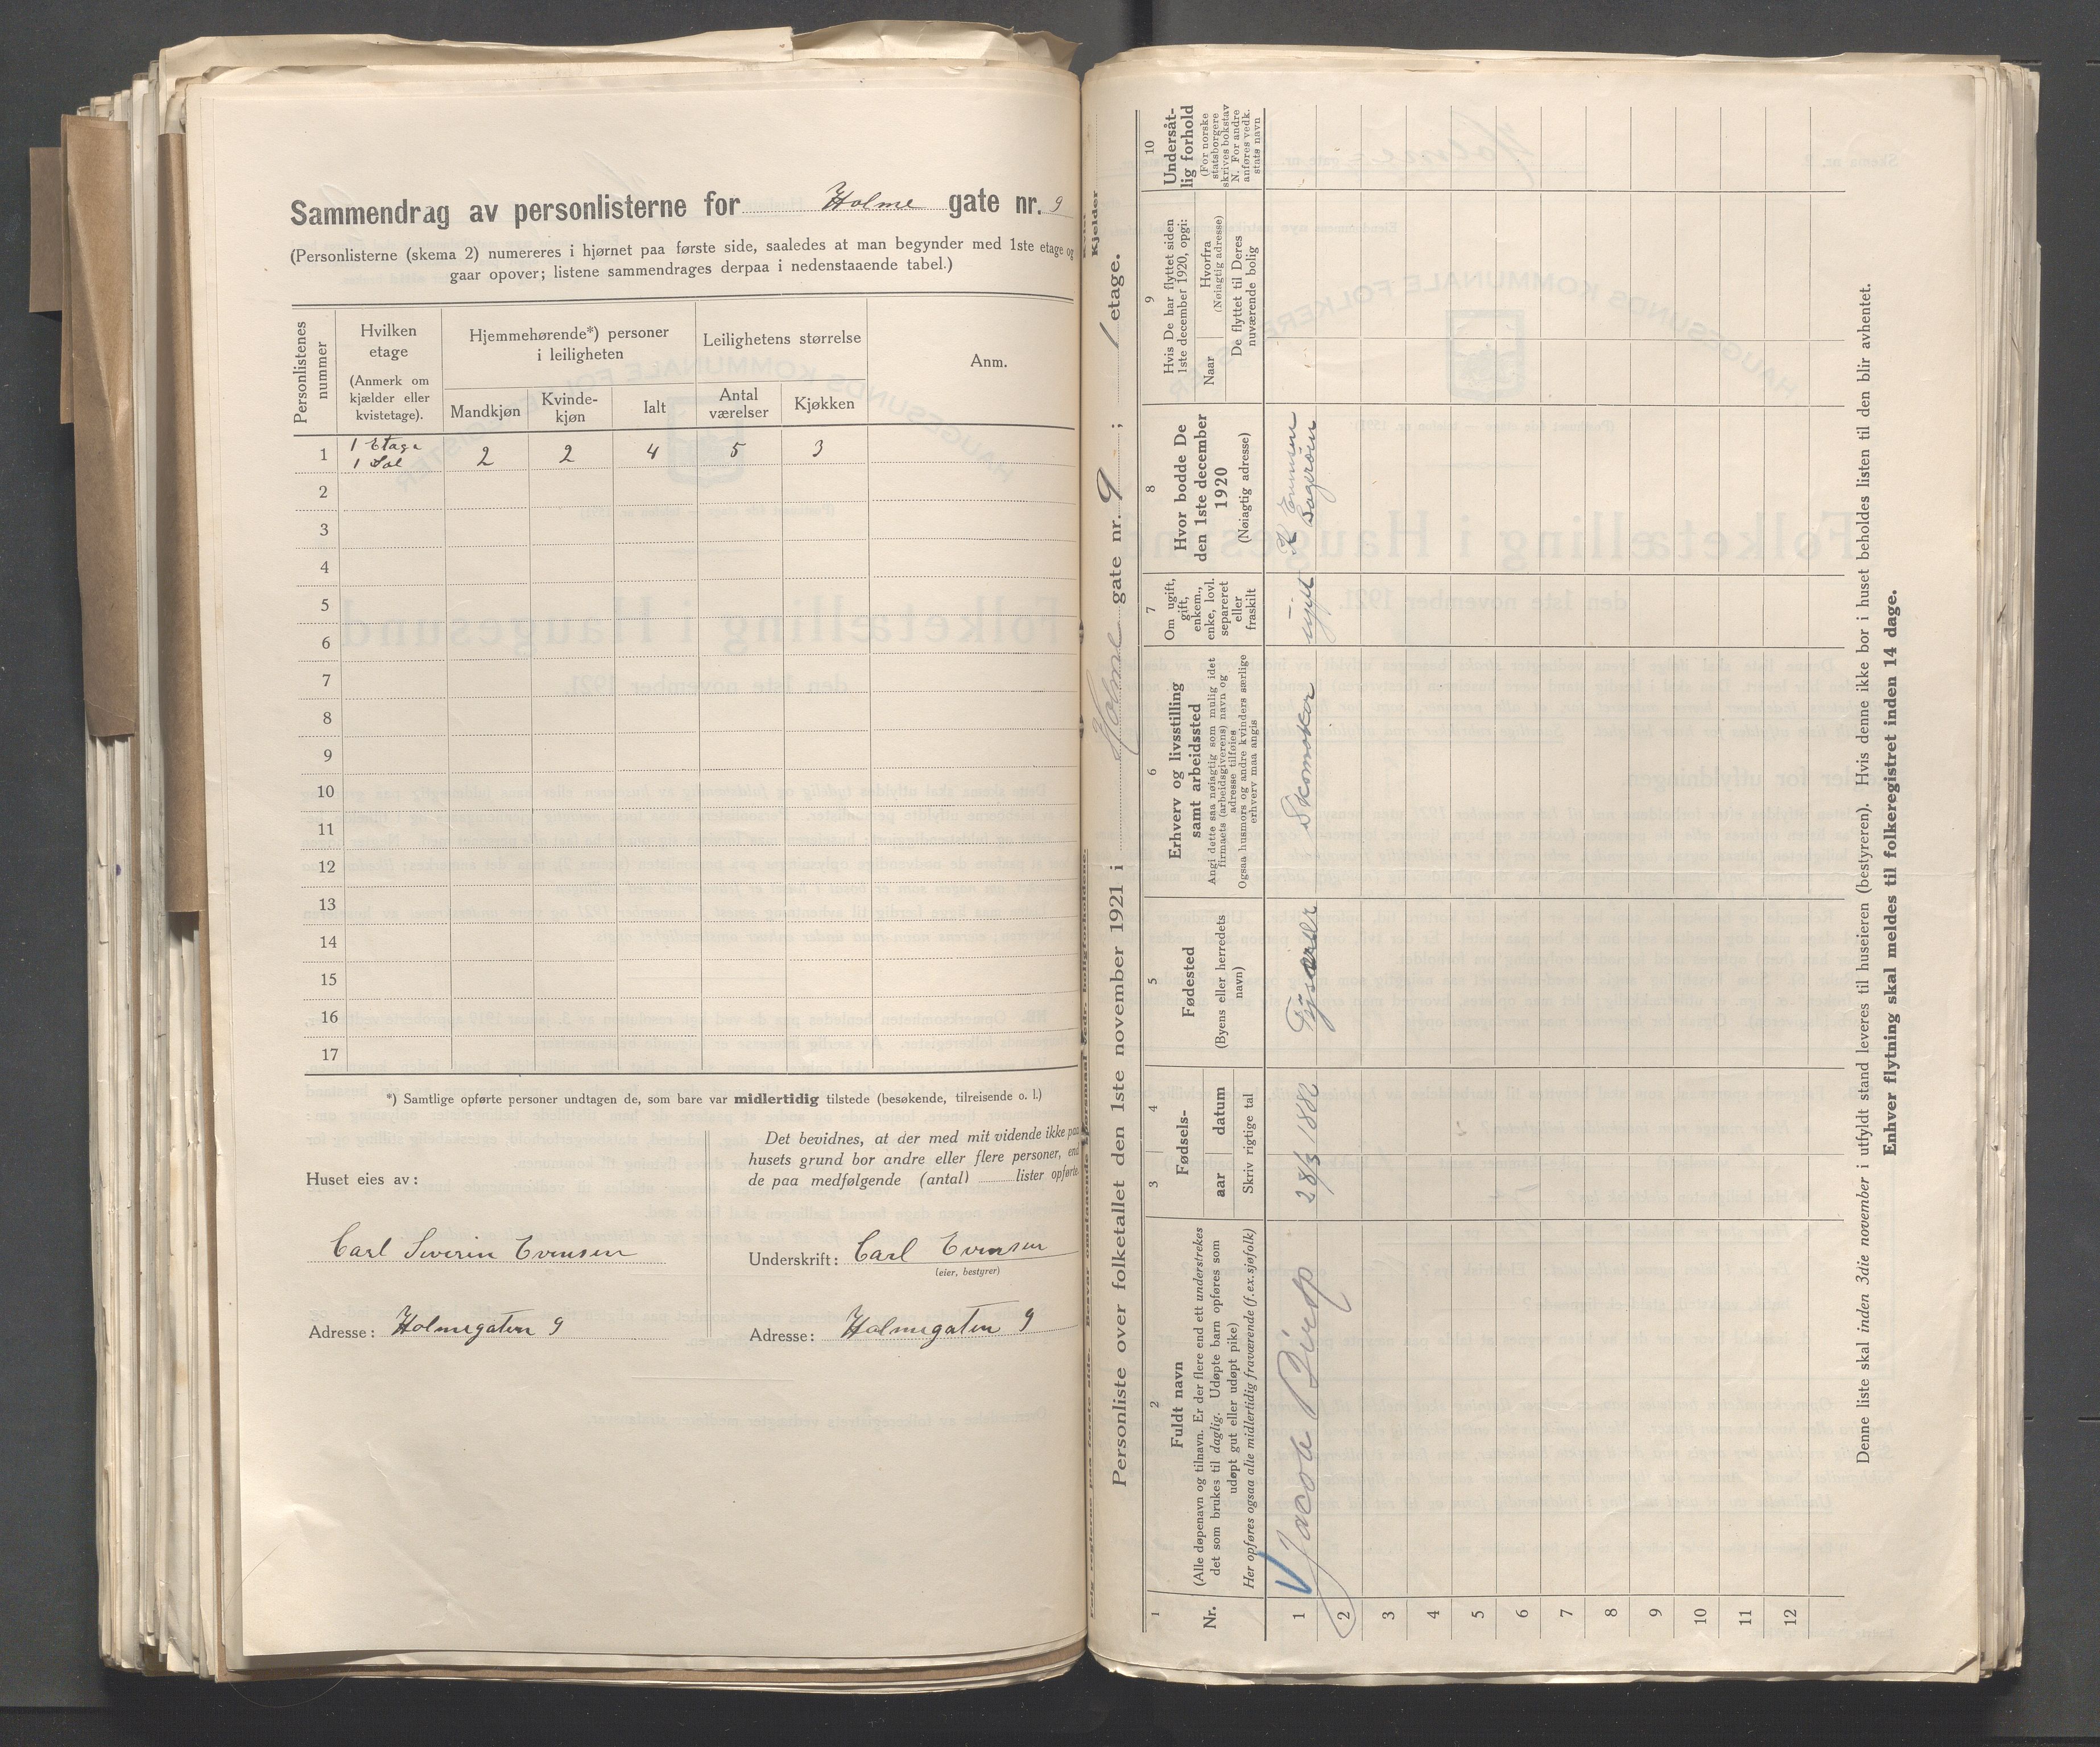 Sammendrag av personlisterne for Holme gate nr. 9
(Personlisterne (skema 2) numereres i hjørnet paa første side, saaledes at man begynder med 1ste etage og
gaar opover; listene sammendrages derpaa i nedenstaaende tabel.)
Personlistenes nummer
Hvilken etage
(Anmerk om kjælder eller kvistetage).
Hjemmehørende*) personer i leiligheten
Mandkjøn
Kvinde-kjøn
Ialt
Leilighetens størrelse
Antal værelser
Kjøkken
Anm.
1 1 Etage 2 2 4 5 3
2
3
4
5
6
7
8
9
10
11
12
13
14
15
16
17
*) Samtlige opførte personer undtagen de, som bare var midlertidig tilstede (besøkende, tilreisende o. l.)
Huset eies av:
Carl Severin Evensen
Adresse: Holmegaten 9
Det bevidnes, at der med mit vidende ikke paa
husets grund bor andre eller flere personer, end
de paa medfølgende (antal) lister opførte
Underskrift: Carl Evensen
(eier, bestyrer)
Adresse: Holmegaten 9
Kjelder
Personliste over folketallet den 1ste november 1921 i Holme gate nr. 9; 1 etage.
1
Nr.
2
Fuldt navn
(Alle døpenavn og tilnavn. Er der flere end ett understrekes
det som brukes til daglig. Udøpte barn opføres som
udøpt gut eller udøpt pike)
Her opføres ogsaa alle midlertidig fraværende (f.ex. sjøfolk)
3 4
Fødsels-
aar datum
Skriv rigtige tal
5
Fødested
(Byens eller herredets navn)
6
Erhverv og livsstilling
samt arbeidssted
Angi dette saa nøiagtig som mulig idet
firmaets (arbeidsgiverens) navn og
adresse tilføies
Ogsaa husmors og andre kvinders særlige
erhverv maa angis
7
Om ugift,
gift,
enkem.,
enke, lovl.
separeret
eller
fraskilt
8
Hvor bodde De
den 1ste december
1920
(Nøiagtig adresse)
9
Hvis De har flyttet siden
1ste december 1920, opgi:
Naar
Hvorfra
(Nøiagtig adresse)
De flyttet til Deres
nuværende bolig
10
Undersåt-
lig forhold
(For norske
statsborgere
skrives bokstav
N. For andre
anføres vedk.
stats navn
1 Jacob 28/3 1882 Tysvær Skomaker ugift
2
3
4
5
6
7
8
9
10
11
12
Denne liste skal inden 3die november i utfyldt stand leveres til huseieren (bestyreren). Hvis denne ikke bor i huset beholdes listen til den blir avhentet.
Enhver flytning skal meldes til folkeregistret inden 14 dage.